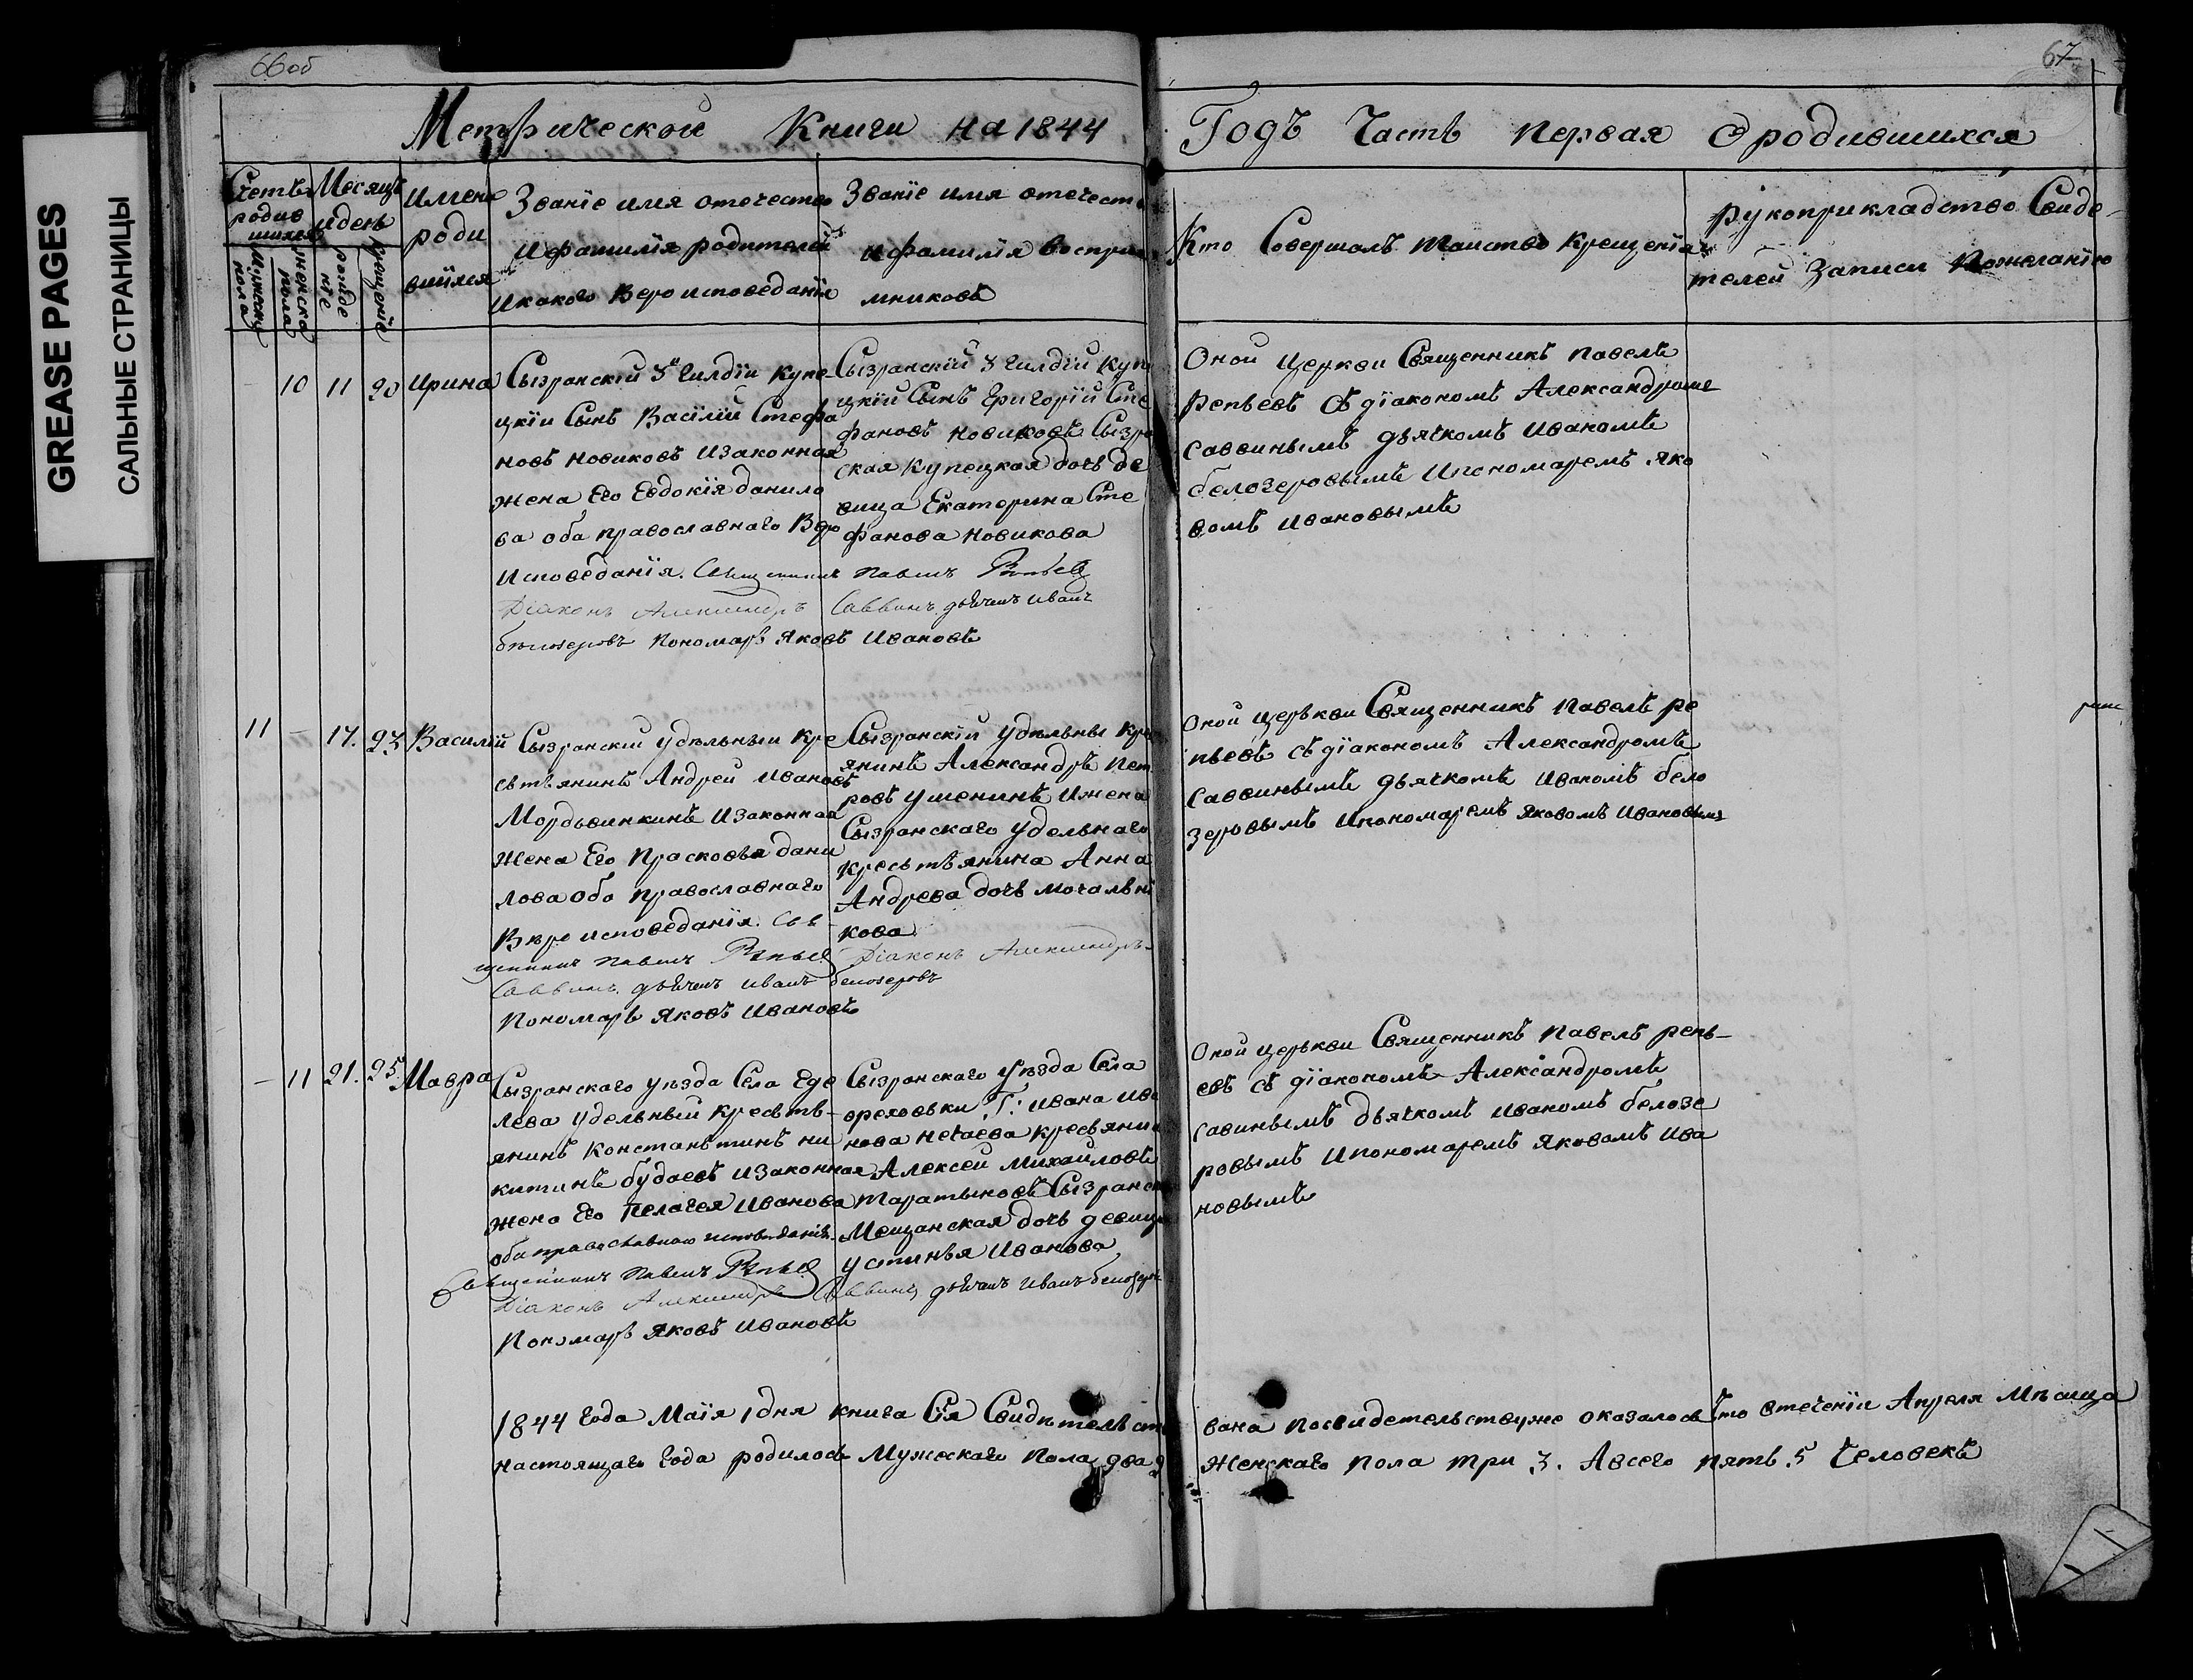 GREASE PAGES
САЛЬНЫЕ СТРАНИЦЫ
66об
67
Метрической Книги на 1844
Годъ Часть первая О родившихся
Счетъ родив шихся
Мужеска пола
женска пола
Месяцъ и день
рожде нїе
крещенїе
Имена роди вшїхся
Званїе имя отечество
и фамилїя родителей
и какого Вероисповеданїя
Званїе имя отечество
и фамилїя воспри
мниковъ
Кто Совершалъ таинство крещенїя
рукоприкладство Свиде-
телей Записи по желанїю
10 11 20 Ирина
Сызранскїй 3й Гилдїи купе-
цкїи Сынъ Василїй Стефа
новъ новиковъ И законная
жена Его Евдокїя данило
ва оба православнаго Веро
Исповеданїя. Священникъ Павелъ Репьевъ
Дїаконъ Александръ Саввинъ дьячекъ Иванъ
белозеровъ Пономарь Яковъ Ивановъ
Сызранскїй 3 Гилдїи Купе
цкїй Сынъ Григорїй Сте
фановъ новиковъ Сызра
ская купецкая дочь де
вица Екатерина Сте
фанова новикова
Оной Церкви Священникъ павелъ
Репьевъ Съ дїакономъ Александромъ
Саввинымъ дьячкомъ Иваномъ
белозеровымъ И пономаремъ Яко
вомъ Ивановымъ
11 — 17. 23 Василїй
Сызранскїй удѣльный кре
сьтьянинъ Андрей Ивановъ
Мордовинкинъ И законная
жена Его Прасковья дани
лова оба православнаго
Вѣроисповеданїя. Свя
щенникъ Павелъ Репьевъ Дїаконъ Александръ
Саввинъ дьячекъ Иванъ белозеровъ
Пономарь Яковъ Ивановъ
Сызранскїй удѣльны Кре
янинъ Александръ Пет
ровъ ушенинъ И жена
Сызранскаго удельнаго
кресьтьянина Анна
Андрева дочь мочальни
кова
Оной церькви Священникъ Павелъ ре
пьевъ съ дїакономъ Александромъ
Саввинымъ дьячкомъ Иваномъ бело
зеровымъ И пономаремъ Яковомъ Ивановымъ
— 11 21. 25 Мавра
Сызранскаго уѣзда Села Еде
лева удельный кресьть-
янинъ Константинъ ни
китинъ будаевъ И законная
жена Его Пелагея Иванова
оба православнаго исповеданїя.
Священникъ Павелъ Репьевъ
Дїаконъ Александръ Саввинъ дьячекъ Иванъ белозеровъ
Пономарь Яковъ Ивановъ
Сызранскаго Уѣзда Села
ореховьки Г: Ивана Ива
нова нечаева кресьянин
Алексей Михайловъ
таратыновъ Сызранс
Мещанская дочь девица
устинья Иванова
Оной церькви Священникъ Павелъ репь-
евъ съ дїакономъ Александромъ
савинымъ дьячкомъ Иваномъ белозе
ровымъ И пономаремъ Яковомъ Ива
новымъ
1844 года Маїя 1 дня книга Сїя Свидѣтельст вована по свидетельству же оказалось Что втеченїи Апреля Мѣсяца
настоящаго года родилось Мужескаго пола два 2 Женскаго пола три 3. А всего пять 5 Человекъ